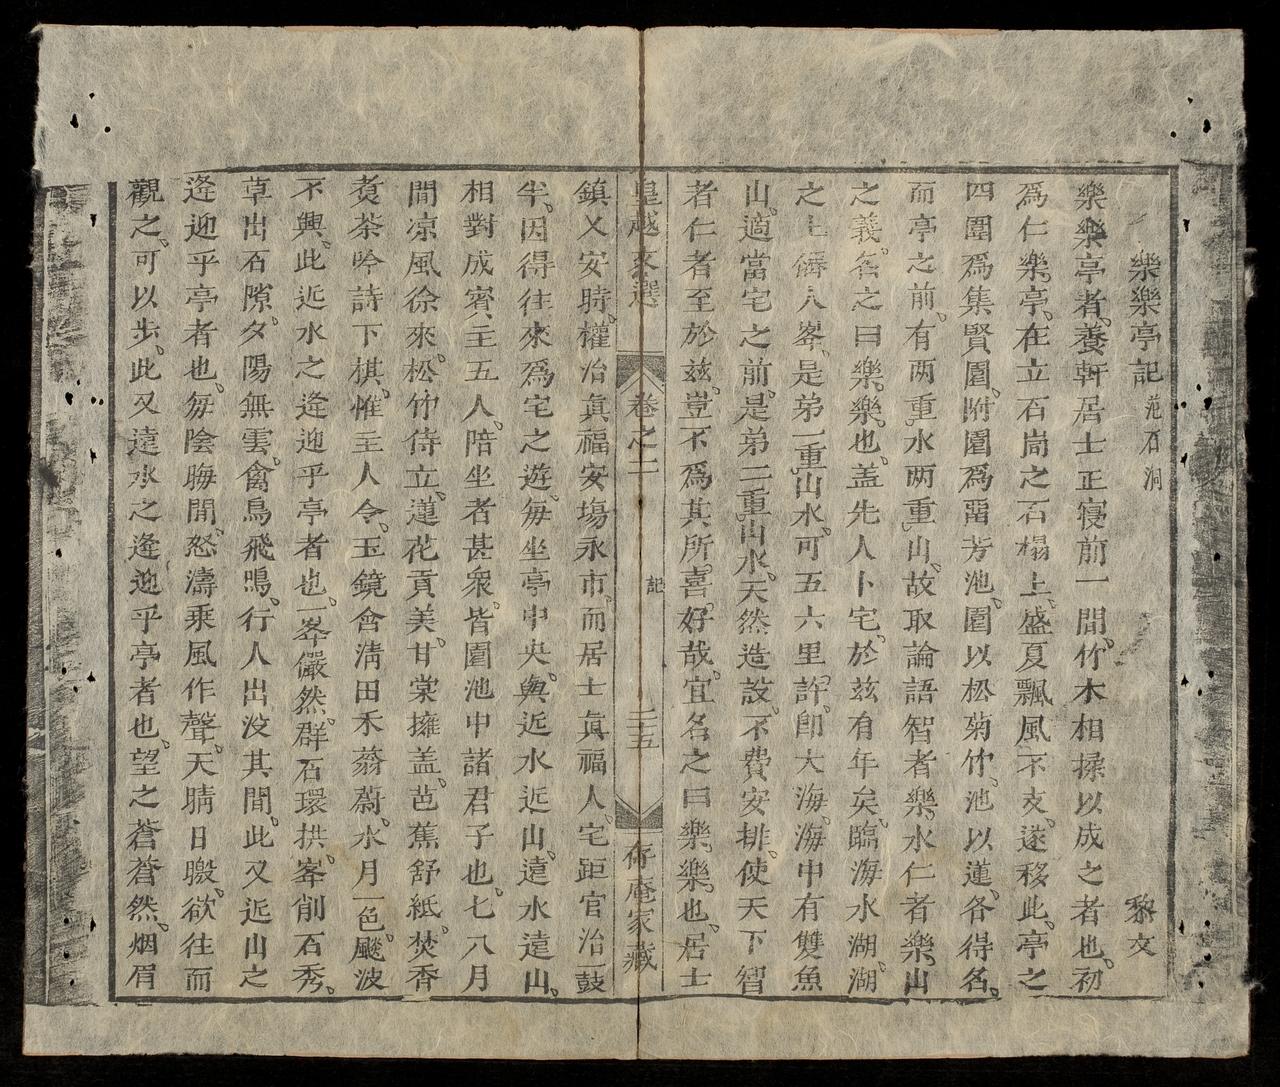 樂樂亭記 范石洞 黎文
樂樂亭者、養軒居士正寢前一間。竹木相揉以成之者也。初
爲仁樂亭、在立石崗之石榻上、盛夏飄風不支、遂移此。亭之
四圍爲集賢圍、附圍爲畱芳池。圍以松菊竹、池以蓮、各得名。
而亭之前、有两重水两重山、故取論語智者樂水仁者樂山
之義。名之曰樂樂也。盖先人卜宅、於茲有年矣。臨海水湖、湖
之上癣入峯、是弟一重山水。可五六里許、卽大海、海中有雙魚
山、適當宅之前、是弟二重山水、天然造設、不費安排。使天下智
者仁者至於兹、豈不爲其所喜。好哉、宜名之曰樂樂也。居士
皇越文選 卷之二 記 二五 存庵家藏
鎮乂安時、權治眞福安塲永市、而居士眞福人、宅距官治一鼓
半、因得往來爲宅之遊、每坐亭中央、與近水近山、遠水遠山、
相對成賓主五人、陪坐者甚衆、皆圍池中諸君子也。七八月
間凉風徐來、松竹侍立、蓮花貢美、甘棠擁盖、芭蕉舒紙、焚香
煑茶吟詩下棋、惟主人令、玉鏡會清田禾蓊蔚、水月一色、颷波
不興、此近水之逢迎乎亭者也。一峯儼然、群石環拱、峯削石秀、
草出石隙、夕陽無雲、禽鳥飛鳴、行人出没其間、此又近山之
逢迎乎亭者也。每陰晦間、怒濤乘風作聲、天晴日暾、欲往而
觀之、可以步、此又遠水之逢迎乎亭者也。望之蒼蒼然、烟眉